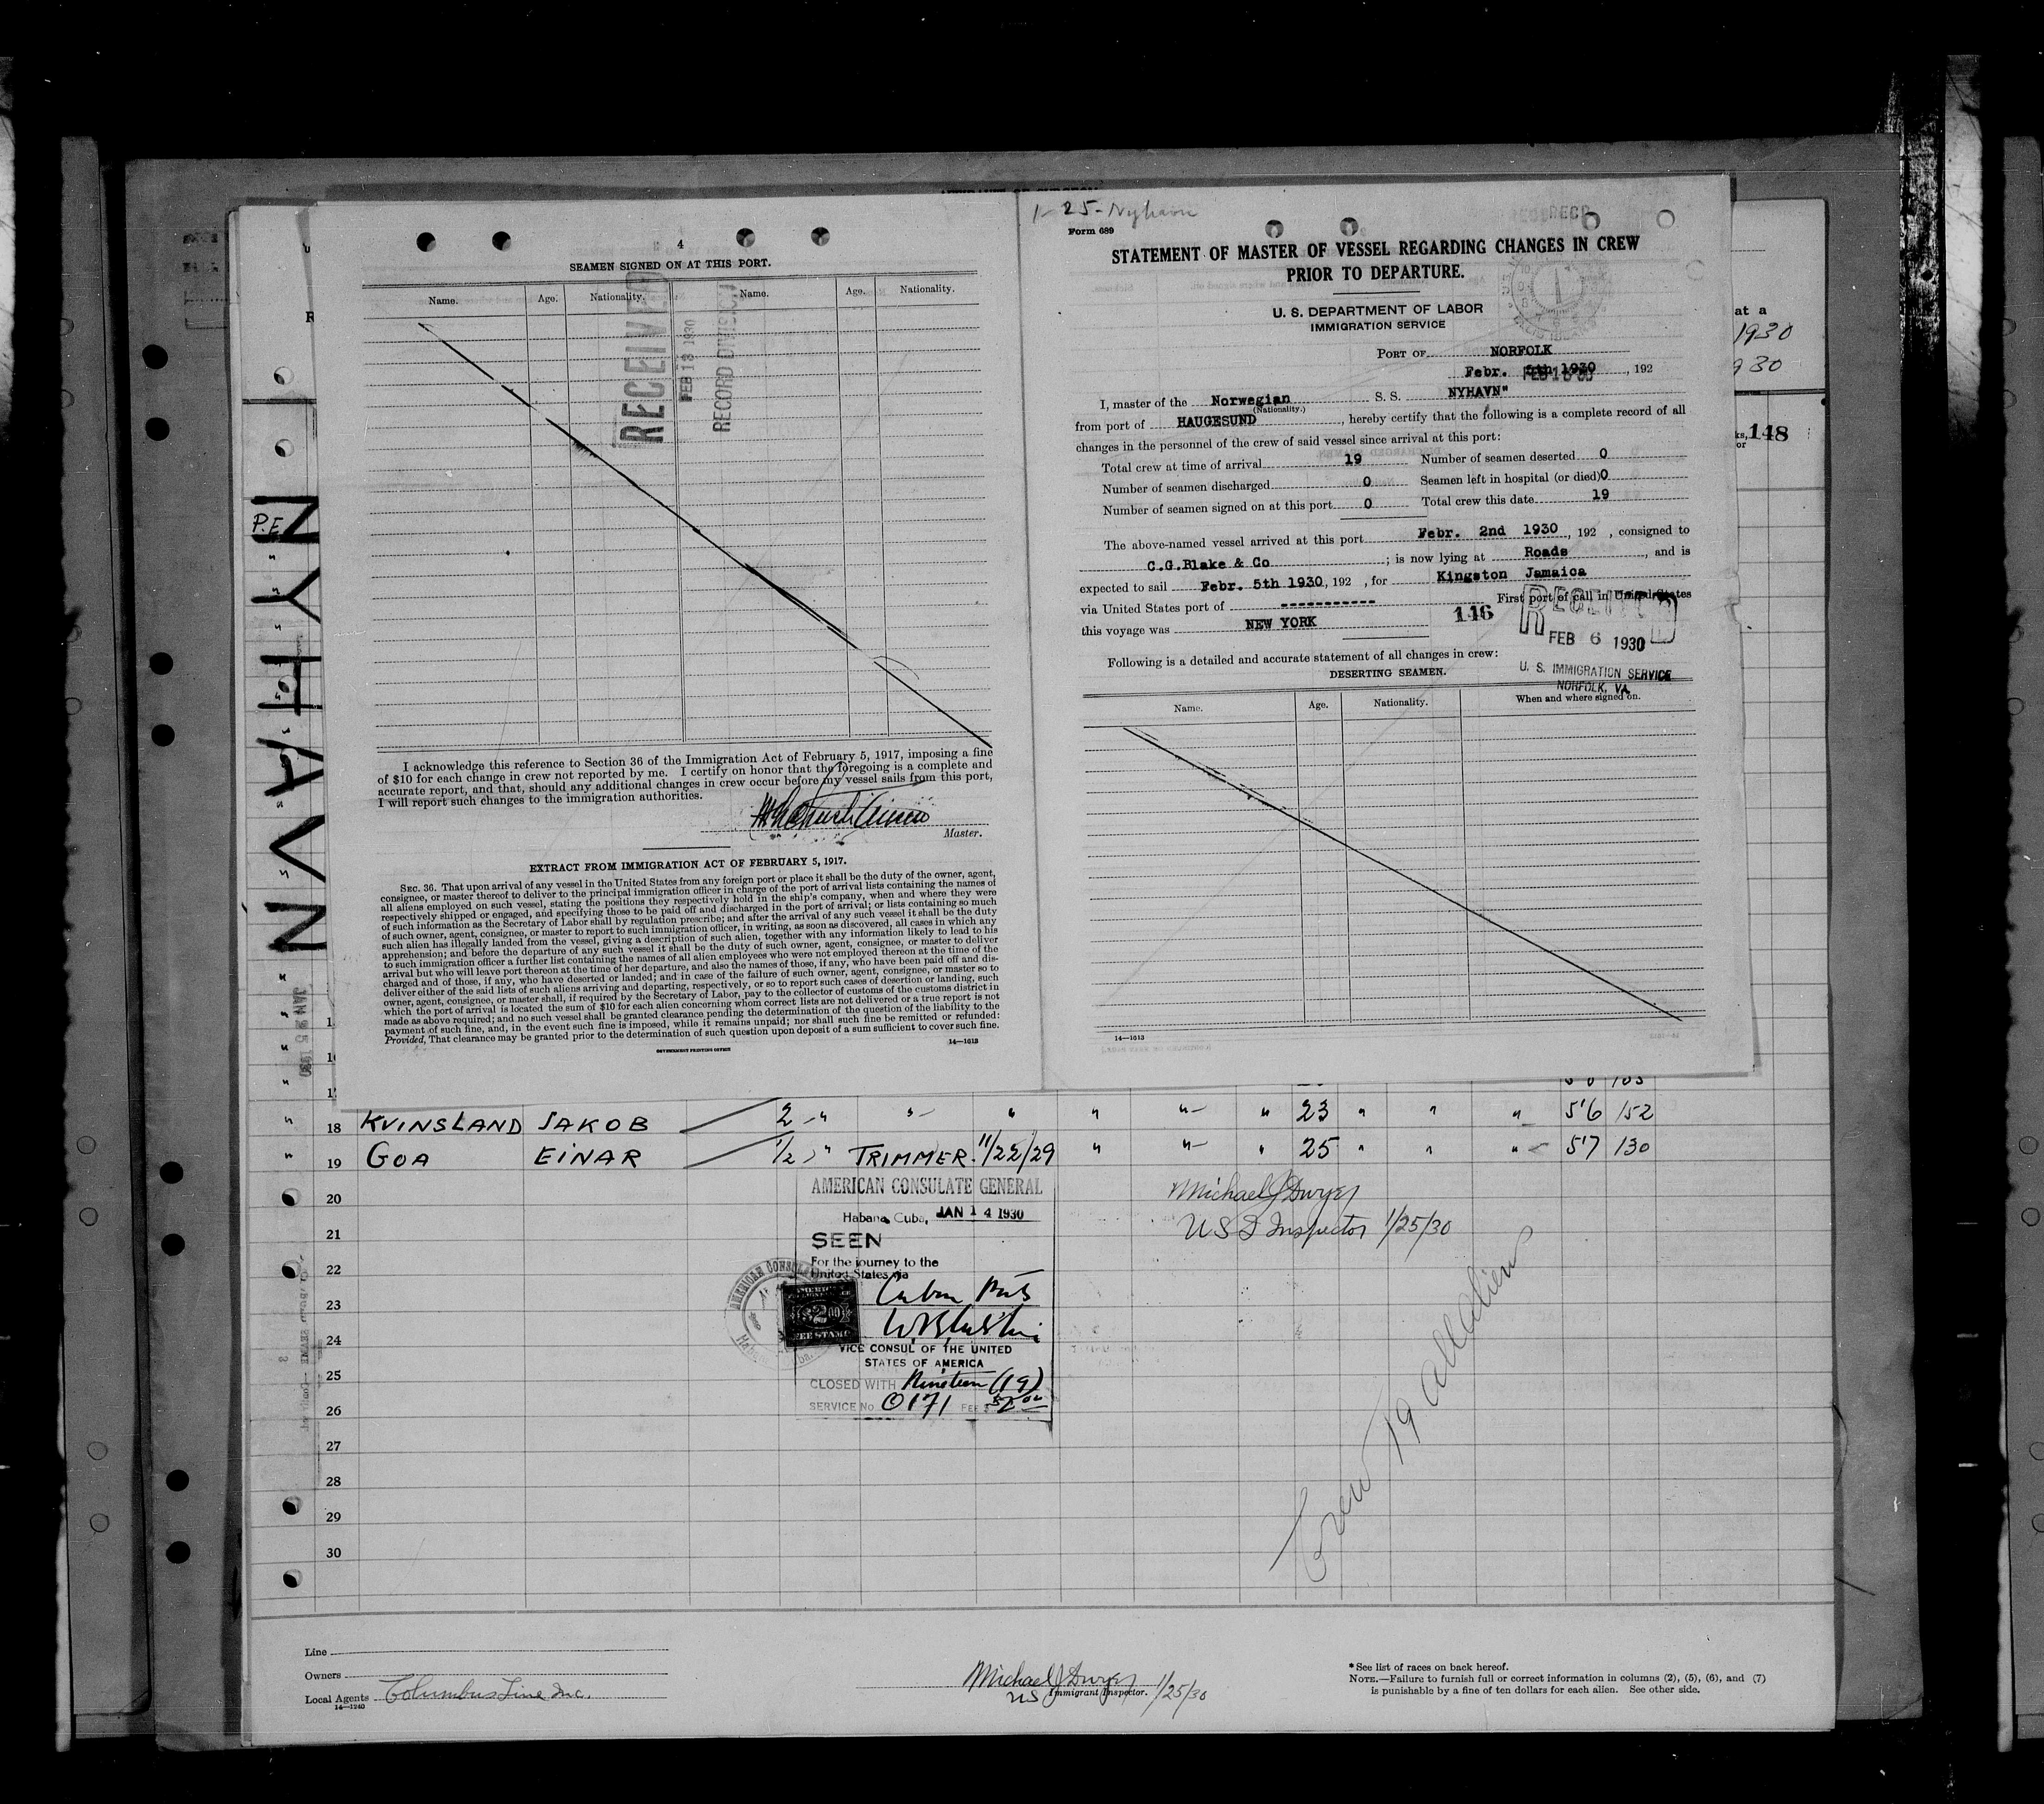 4
SEAMEN SIGNED ON AT THIS PORT.
Name. Age. Nationality. Name. Age. Nationality.
RECEIVED
FEB 13 1930
RECORD DIVISION
I acknowledge this reference to Section 36 of the Immigration Act of February 5, 1917, imposing a fine
of $10 for each change in crew not reported by me. I certify on honor that the foregoing is a complete and
accurate report, and that, should any additional changes in crew occur before my vessel sails from this port,
I will report such changes to the immigration authorities.
Master.
EXTRACT FROM IMMIGRATION ACT OF FEBRUARY 5, 1917.
SEC. 36. That upon arrival of any vessel in the United States from any foreign port or place it shall be the duty of the owner, agent,
consignee, or master thereof to deliver to the principal immigration officer in charge of the port of arrival lists containing the names of
all aliens employed on such vessel, stating the positions they respectively hold in the ship's company, when and where they were
respectively shipped or engaged, and specifying those to be paid off and discharged in the port of arrival; or lists containing so much
of such information as the Secretary of Labor shall by regulation prescribe; and after the arrival of any such vessel it shall be the duty
of such owner, agent, consignee, or master to report to such immigration officer, in writing, as soon as discovered, all cases in which any
such alien has illegally landed from the vessel, giving a description of such alien, together with any information likely to lead to his
apprehension; and before the departure of any such vessel it shall be the duty of such owner, agent, consignee, or master to deliver
to such immigration officer a further list containing the names of all alien employees who were not employed thereon at the time of the
arrival but who will leave port thereon at the time of her departure, and also the names of those, if any, who have been paid off and dis-
charged and of those, if any, who have deserted or landed; and in case of the failure of such owner, agent, consignee, or master so to
deliver either of the said lists of such aliens arriving and departing, respectively, or so to report such cases of desertion or landing, such
owner, agent, consignee, or master shall, if required by the Secretary of Labor, pay to the collector of customs of the customs district in
which the port of arrival is located the sum of $10 for each alien concerning whom correct lists are not delivered or a true report is not
made as above required; and no such vessel shall be granted clearance pending the determination of the question of the liability to the
payment of such fine, and, in the event such fine is imposed, while it remains unpaid; nor shall such fine be remitted or refunded:
Provided, That clearance may be granted prior to the determination of such question upon deposit of a sum sufficient to cover such fine.
GOVERNMENT PRINTING OFFICE
14—1613
1-25-Nyhavn
Form 689
STATEMENT OF MASTER OF VESSEL REGARDING CHANGES IN CREW
PRIOR TO DEPARTURE.
U. S. DEPARTMENT OF LABOR
IMMIGRATION SERVICE
PORT OF NORFOLK
Febr. 5th 1930, 192
I, master of the Norwegian S. S. NYHAVN"
(Nationality.)
from port of HAUGESUND, hereby certify that the following is a complete record of all
changes in the personnel of the crew of said vessel since arrival at this port:
Total crew at time of arrival 19 Number of seamen deserted 0
Number of seamen discharged 0 Seamen left in hospital (or died) 0
Number of seamen signed on at this port 0 Total crew this date 19
The above-named vessel arrived at this port Febr. 2nd 1930, 192 , consigned to
C.G.Blake & Co ; is now lying at Roads, and is
expected to sail Febr. 5th 1930, 192 , for Kingston Jamaica
via United States port of ----------- First port of call in United States
this voyage was NEW YORK
146
RECEIVED
FEB 6 1930
U. S. IMMIGRATION SERVICE
NORFOLK, VA.
Following is a detailed and accurate statement of all changes in crew:
DESERTING SEAMEN.
Name. Age. Nationality. When and where signed on.
14—1613
at a
1930
930
148
P.E
NYHAVN
JAN 25 1930
18 KVINSLAND JAKOB 2 " " " " " " 23 " " " 5'6 152
19 GOA EINAR 1/2 " TRIMMER 11/22/29 " " " 25 " " " 5'7 130
20
21
22
23
24
25
26
27
28
29
30
AMERICAN CONSULATE GENERAL
Habana, Cuba, JAN 14 1930
SEEN
For the journey to the
United States via
Cuban Ports
VICE CONSUL OF THE UNITED
STATES OF AMERICA
CLOSED WITH Nineteen (19)
SERVICE No 0171 FEE $ 2.00
Michael J Dwyer
US I Inspector 1/25/30
Crew 19 all aliens
Line
Owners
Local Agents Columbus Line Inc.
14—1240
Michael J Dwyer
US Immigrant Inspector. 1/25/30
* See list of races on back hereof.
NOTE.—Failure to furnish full or correct information in columns (2), (5), (6), and (7)
is punishable by a fine of ten dollars for each alien. See other side.